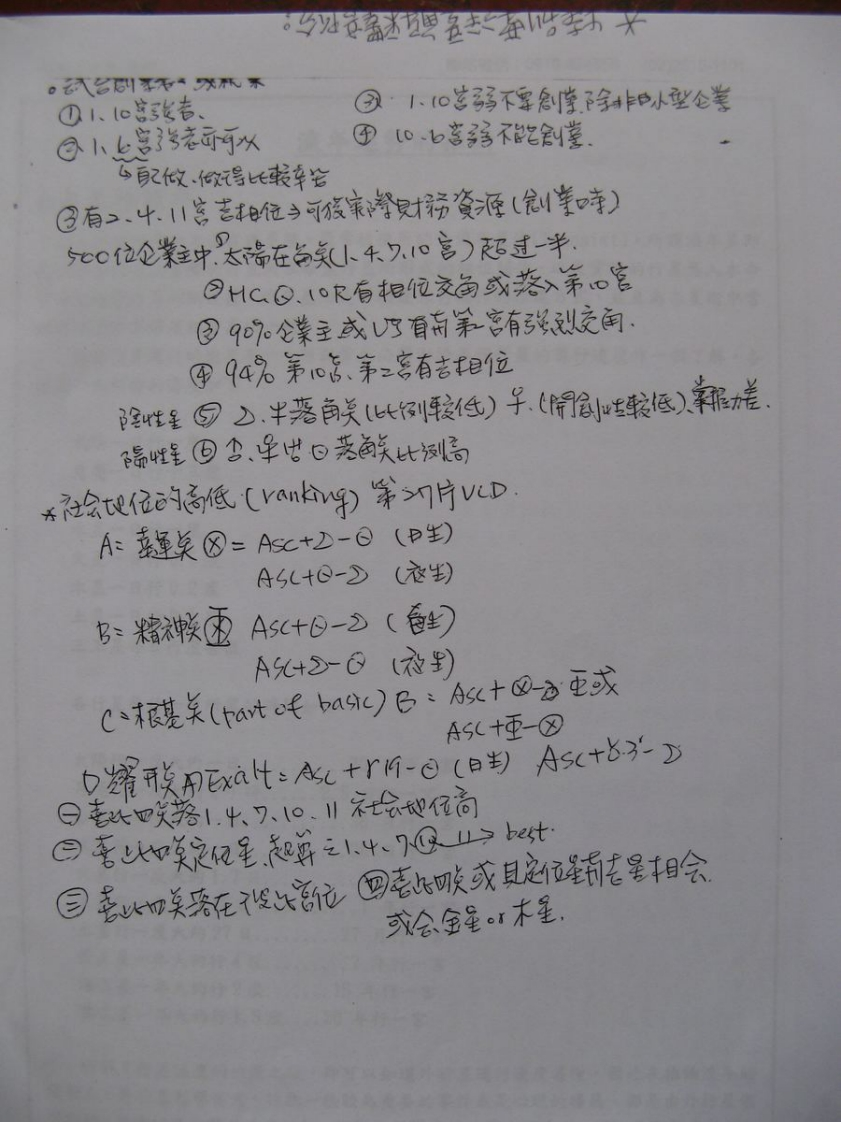 ①1、10宮強者、
③、1.10宮弱不要創業,除非日小型企業
②、1、6宮強者可可以
④ 10、6宮弱不能創業.
↳自己做、做得比較辛苦
③有2、4、11宮吉相位→可獲實際財務資源(創業時)
500位企業主中,①太陽在角矣(1、4、7、10宮)超过一半.
②MC、⊙、10R有相位交角或落入第10宮
③ 90%企業主或 第二宮有強烈交角.
④ 94% 第10宮、第二宮有吉相位
陰性星 ⑤ 落角矣(比例較低) (開創性較低)、掌握力差.
陽性星 ⑥ 落角矣比例高
*社会地位的高低(ranking) 第27片VCD.
A= 幸運矣 ⊗ = Asc+☽-⊙ (日生)
Asc+⊙-☽ (夜生)
B= 精神矣 Asc+⊙-☽ (日生)
Asc+☽-⊙ (夜生)
C=根基矣(part of basic) B = Asc+⊗- 或
Asc+ -⊗
D 耀昇矣 Exalt = Asc+♈19-⊙ (日生) Asc+♉3°-☽
㊀ 喜此四矣落1、4、7、10、11 社会地位高
㊁ 喜此四矣定位星、起算之1、4、7、⑩、11→best.
㊂ 喜此四矣落在 宮位 ㊃喜此四矣或其定位星前吉星相会.
或会金星or木星.